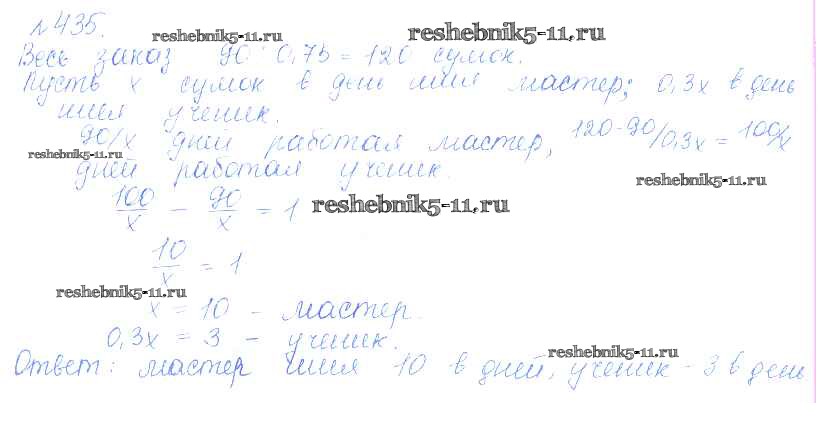 №435.
reshebnik5-11.ru
reshebnik5-11.ru
Весь заказ 90 : 0,75 = 120 сумок.
Пусть x сумок в день шил мастер; 0,3x в день
шил ученик.
90/x дней работал мастер, 120-90/0,3x = 100/x
reshebnik5-11.ru
дней работал ученик.
reshebnik5-11.ru
100/x - 90/x = 1
reshebnik5-11.ru
10/x = 1
reshebnik5-11.ru
x = 10 - мастер.
0,3x = 3 - ученик.
reshebnik5-11.ru
Ответ: мастер шил 10 в дней, ученик - 3 в день